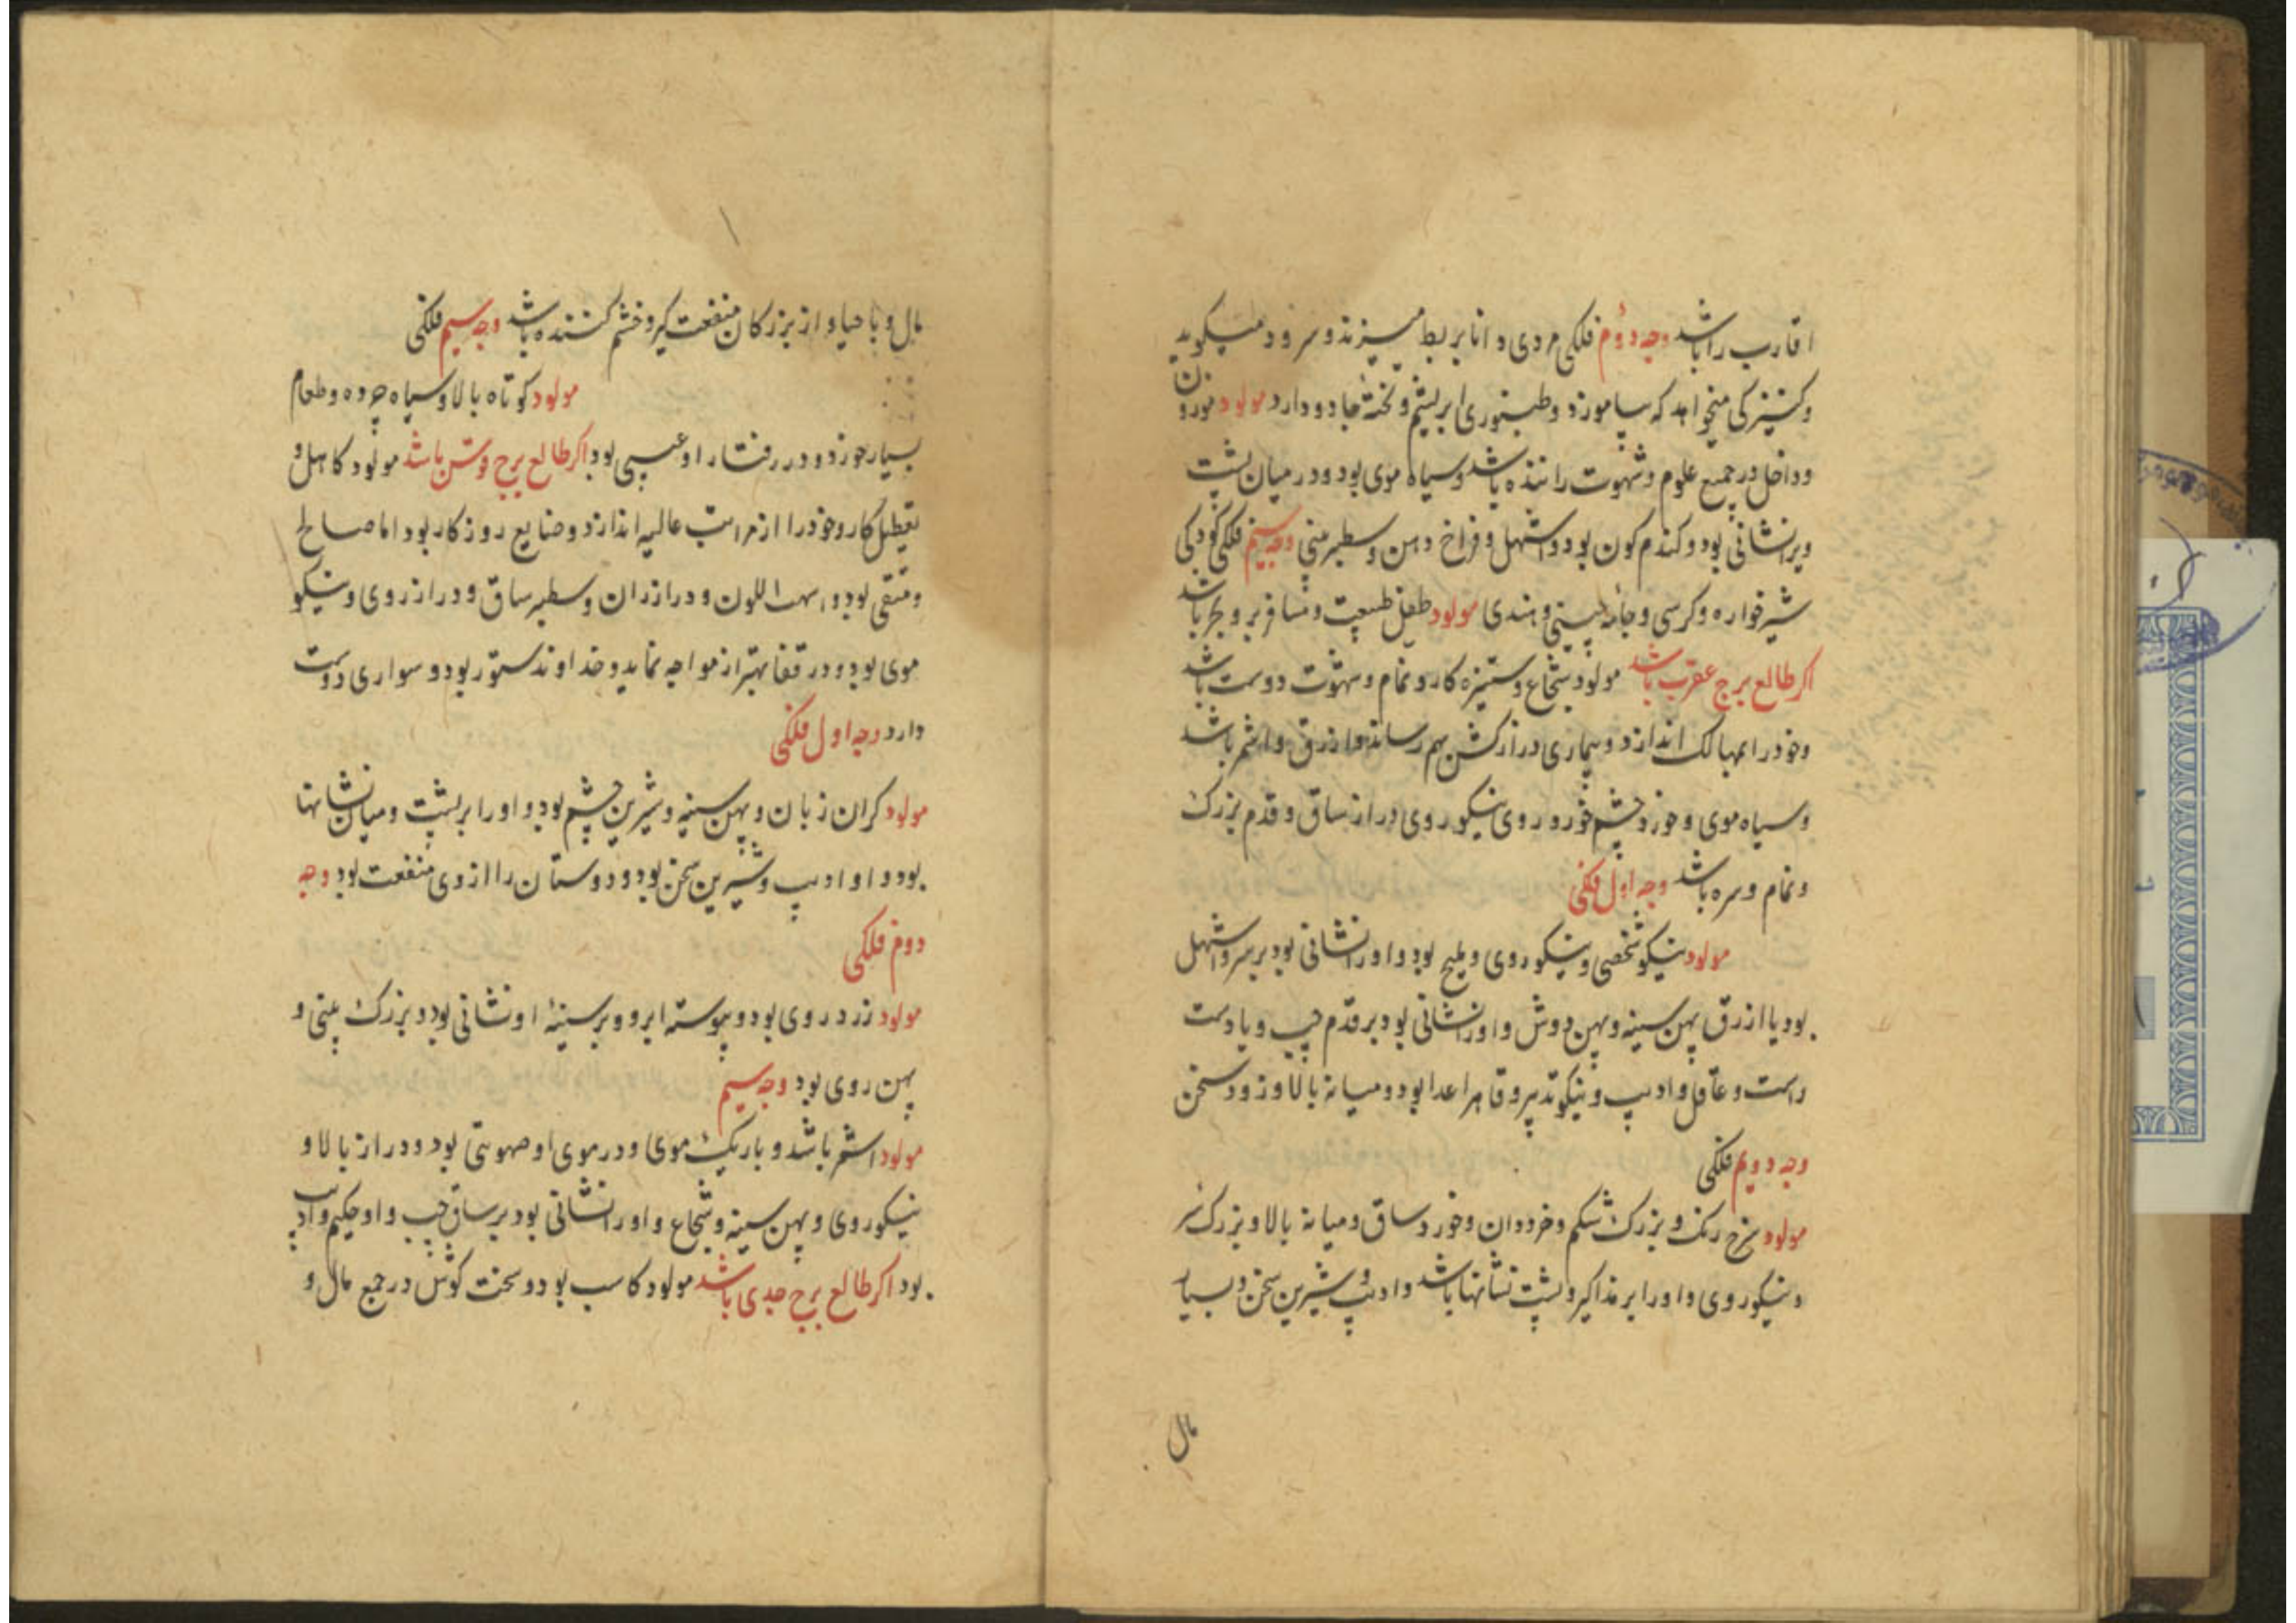 اقارب را باشد وجه دوم فلکی مردی و انا بربط میزند و سرود میکوید
و کنیزکی میخواهد که بیاموزد و طنبوری ابریشم و تخته جادو دارد مولود مورو
و داخل در جمیع علوم و شهوت راننده باشد و سیاه موی بود و در میان پشت
ویرا نشانی بود و کندم کون بود و اشهل و فراخ دهن و سطبر بینی وجه سیم فلکی کودکی
شیرخواره و کرسی و جامه چینی و هندی مولود طفل طبیعت و مسافر بر و بحر باشد
اکر طالع برج عقرب باشد مولود شجاع و ستیزه کار و نمام و شهوت دوست باشد
و خود را بمهالک اندازد و بیماری دراز کشش بهم رساند و ازرق و اشقر باشد
و سیاه موی و خورد چشم خورد روی نیکو روی دراز ساق و قدم بزرک
و نمام و سره باشد وجه اول فلکی
مولود نیکو شخصی و نیکو روی و ملیح بود و او را نشانی بود بر سر و اشهل
بود یا ازرق پهن سینه و پهن دوش و او را نشانی بود بر قدم چپ و یا دست
راست و عاقل و ادیب و نیکو تدبیر و قاهر اعدا بود و میانه بالا و زود سخن
وجه دویم فلکی
مولود سرخ رنک و بزرک شکم و خرد دان و خورد ساق و میانه بالا و بزرک سر
و نیکو روی و او را بر مذاکیر و پشت نشانها باشد و ادیب و شیرین سخن و بسیار
مال
مال و با حیا و از بزرکان منفعت کیر و خشم کننده باشد وجه سیم فلکی
مولود کوتاه بالا و سیاه چرده و طعام
بسیار خورد و در رفتار او عیبی بود اکر طالع برج قوس باشد مولود کاهل و
تعطیل کار و خود را از مراتب عالیه اندازد و ضایع روزکار بود اما صالح
و متقی بود و اللون و دراز ران و سطبر ساق و دراز روی و نیکو
موی بود و در قفا بهتر از مواجه نماید و خداوند ستور بود و سواری دوست
دارد وجه اول فلکی
مولود کران زبان و پهن سینه و شیرین چشم بود و او را بر پشت و میان نشانها
بود و او ادیب و شیرین سخن بود و دوستان را از وی منفعت بود وجه
دوم فلکی
مولود زرد روی بود و پیوسته ابرو و بر سینهٔ او نشانی بود و بزرک بینی و
پهن روی بود وجه سیم
مولود اشقر باشد و باریک موی و در موی او صهوبتی بود و دراز بالا و
نیکو روی و پهن سینه و شجاع و او را نشانی بود بر ساق چپ و او حکیم و ادیب
بود اکر طالع برج جدی باشد مولود کاسب بود و سخت کوش در جمع مال و